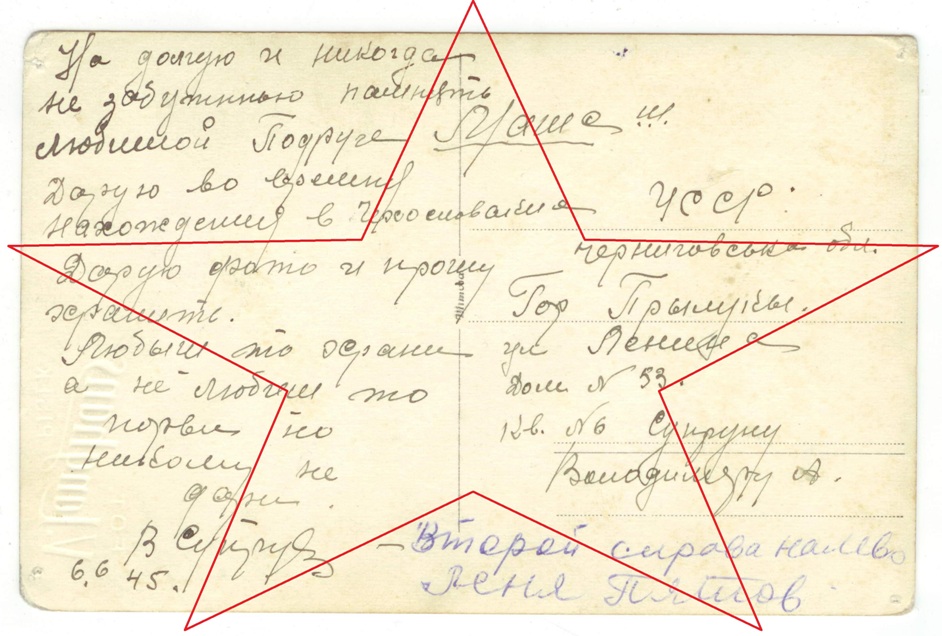 На долгую и никогда
не забутнню память
любимой Подруге Маше!!!
Дарую во время
нахождения в Чехословакии
Дарую фото и прошу
хранить.
Любиш то храни
а не любиш то
порви но
никому не
дари.
В Супрун
6.6 45.
УССР.
Черниговська обл.
Гор Прылукы.
ул Ленина
Дом N 53.
Кв. N6 Супруну
Володимиру А.
– Второй справа налево
Леня Пятов